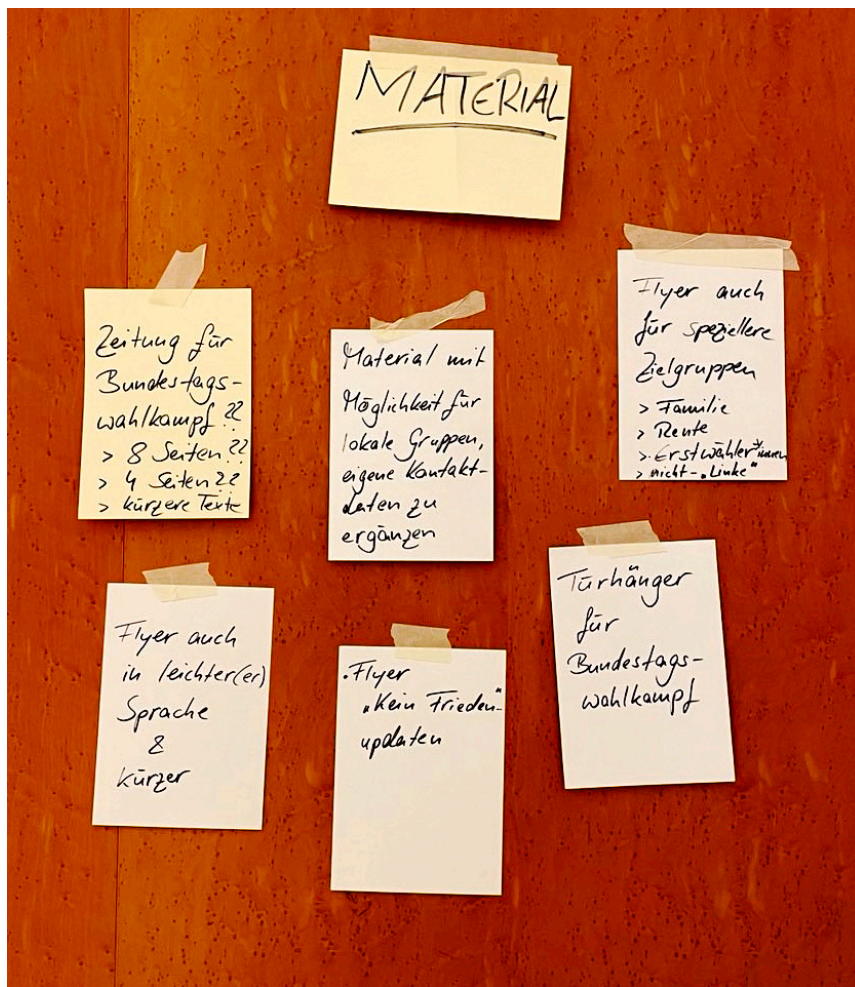 MATERIAL
Zeitung für
Bundestags-
wahlkampf ??
> 8 Seiten ??
> 4 Seiten ??
> kürzere Texte
Material mit
Möglichkeit für
lokale Gruppen,
eigene Kontakt-
daten zu
ergänzen
Flyer auch
für speziellere
Zielgruppen
> Familie
> Rente
> Erstwähler*innen
> nicht-„Linke“
Flyer auch
in leichter(er)
Sprache
&
kürzer
.Flyer
„Kein Frieden“
updaten
Türhänger
für
Bundestags-
wahlkampf